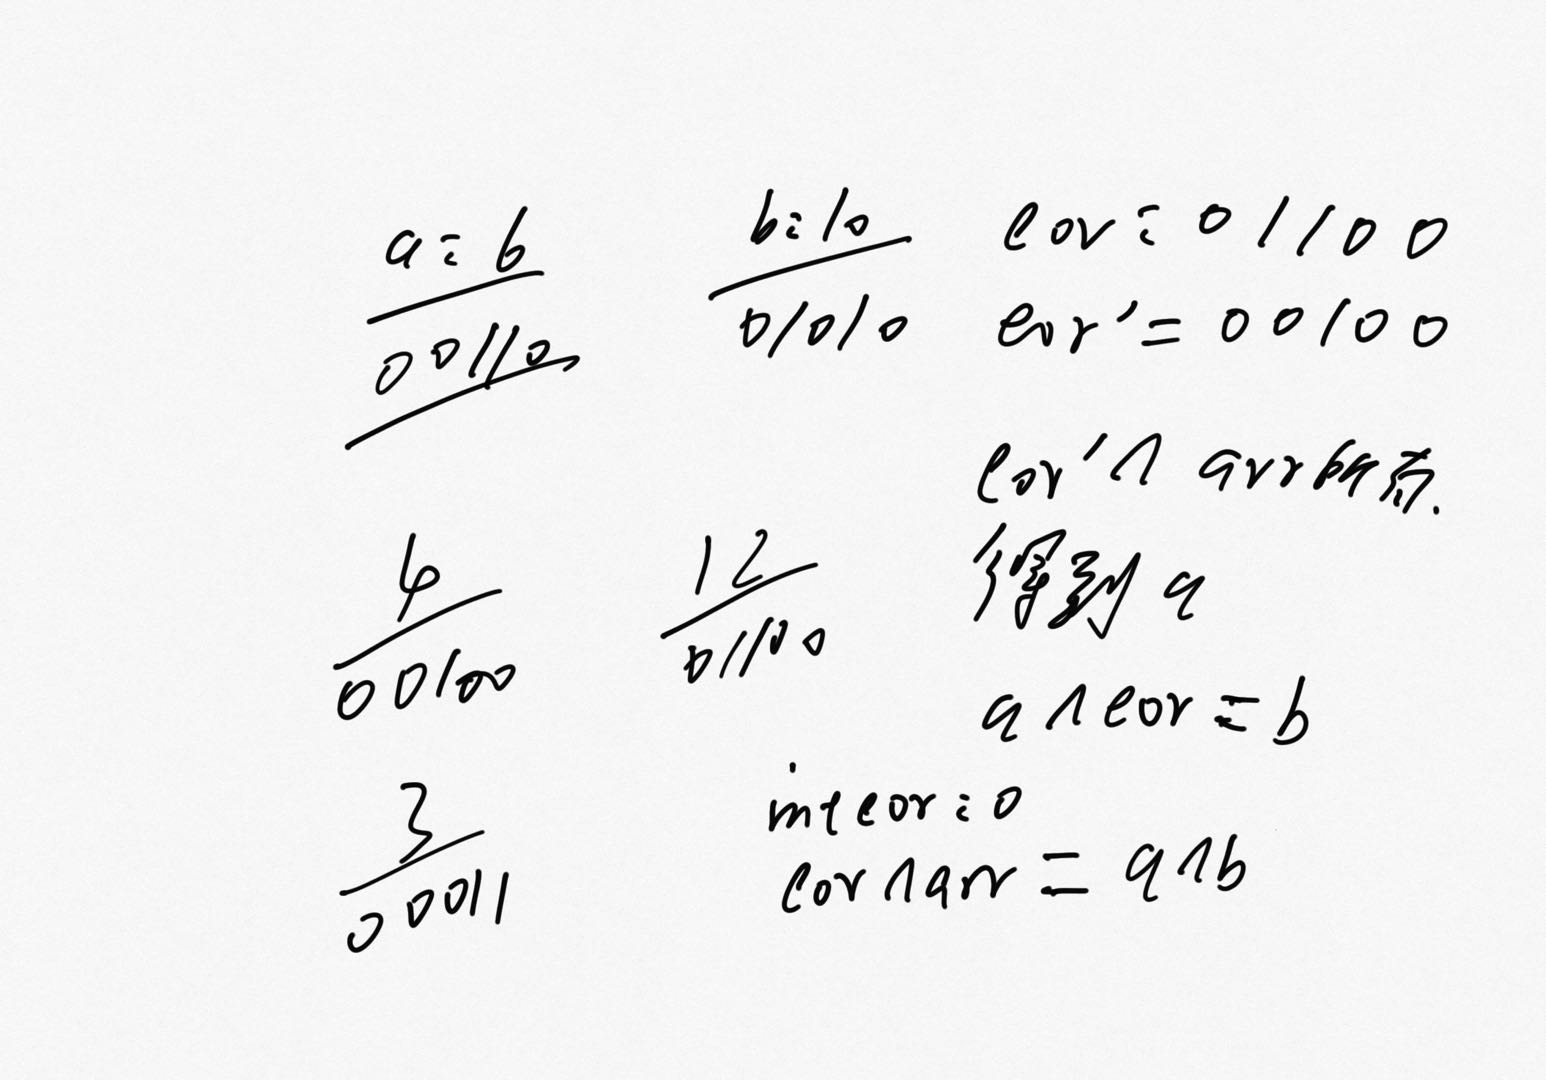 a = 6
00110
b = 10
01010
eor = 01100
eor' = 00100
eor' ^ arr
得到 a
a ^ eor = b
4
00100
12
01100
3
00011
int eor = 0
eor ^ arr = a ^ b